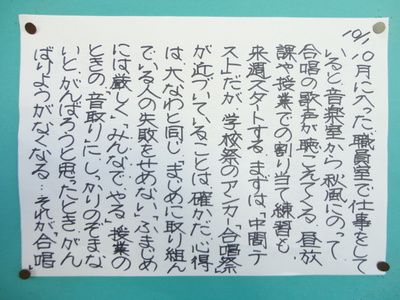 10/1
10月に入った。職員室で仕事をして
いると、音楽室から秋風にのって
合唱の歌声が聴こえてくる。昼放
課や授業での割り当て練習も
来週スタートする。まずは「中間テ
スト」だが、学校祭のアンカー「合唱祭」
が近づいていることは確かだ。心得
は、大なわと同じ。「まじめに取り組ん
でいる人の失敗をせめない」「ふまじめ
には厳しく」「みんなでやる」授業の
ときの「音取り」にしっかりのぞまな
いと、がんばろうと思ったとき、がん
ばりようがなくなる。それが「合唱